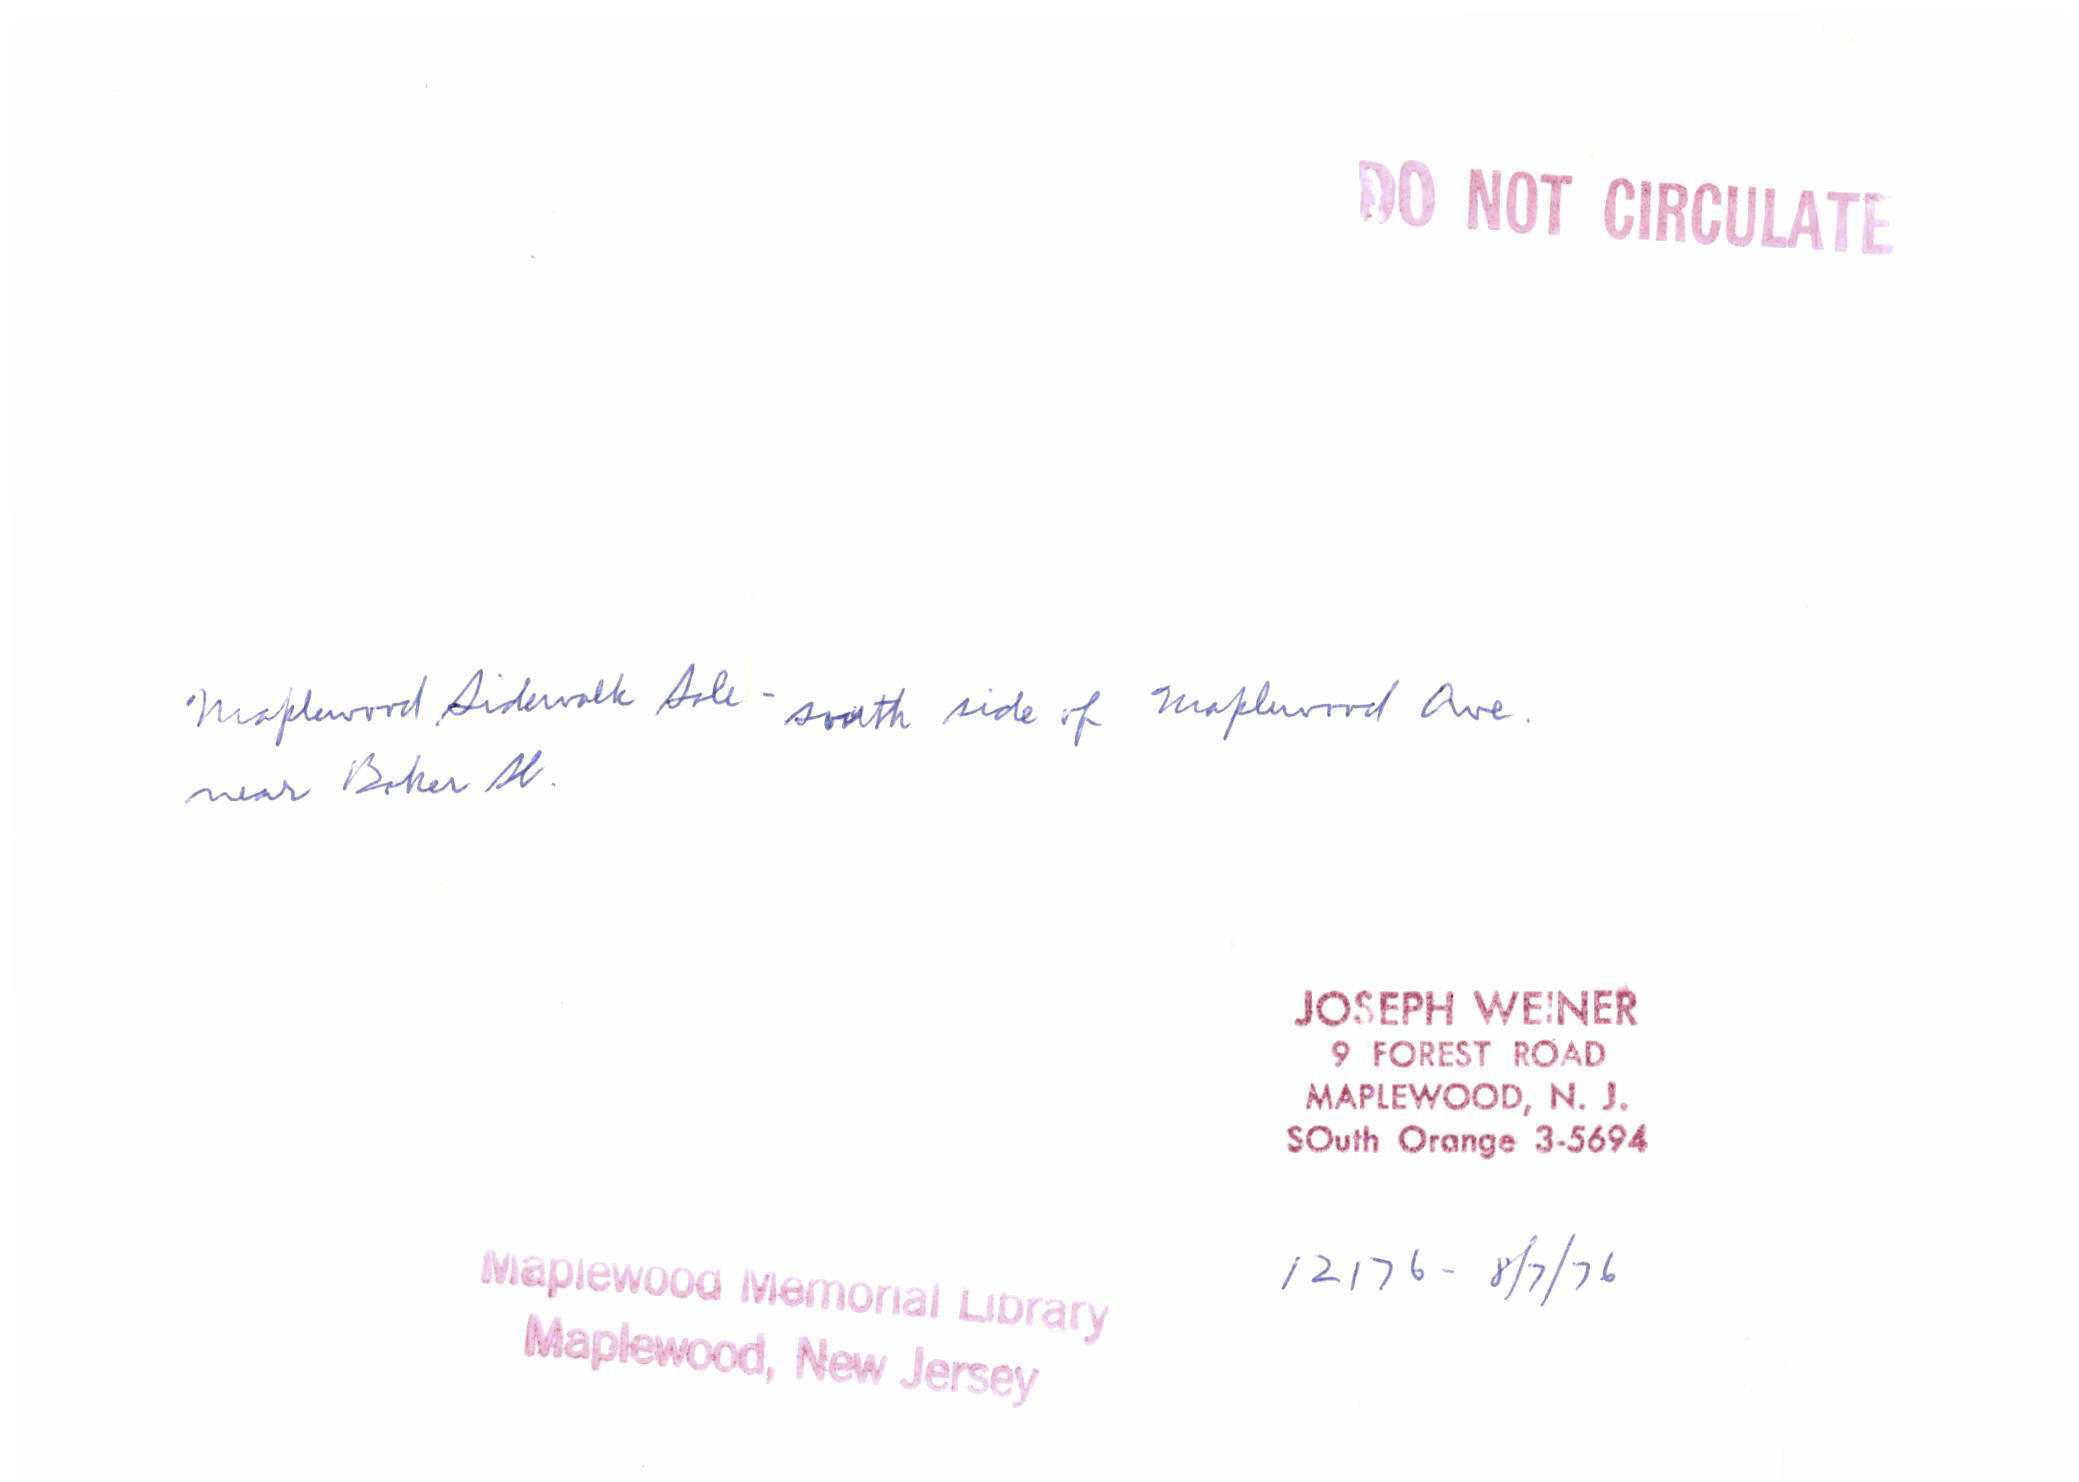 DO NOT CIRCULATE
Maplewood Sidewalk Sale - south side of Maplewood Ave.
near Baker St.
JOSEPH WEINER
9 FOREST ROAD
MAPLEWOOD, N. J.
SOuth Orange 3-5694
12176 - 8/7/76
Maplewood Memorial Library
Maplewood, New Jersey